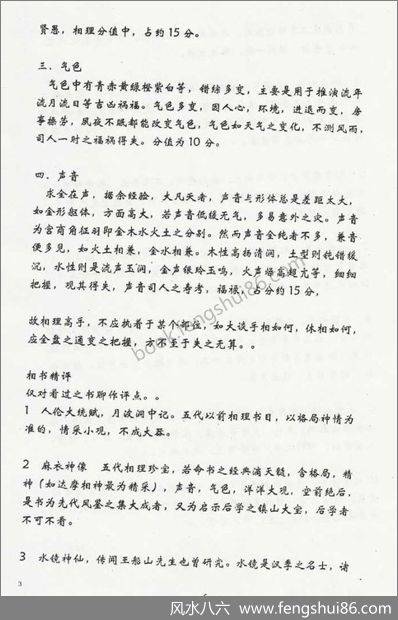 贤愚，相理分值中，占约15分。
三．气色
气色中有青赤黄绿橙紫白等，错综多变，主要是用于推演流年
流月流日等吉凶祸福。气色多变，因人心，环境，进退而变，房
事操劳，夙夜不眠都能改变气色，气色如天气之变化，不测风雨，
司人一时之福祸得失。分值为10分。
四．声音
求全在声，据余经验，大凡夭者，声音与形体总是差距太大，
如金形躯体，方面高大，若声音低缓无气，多易意外之灾。声音
为宫商角征羽即金木水火土之分别。然而声音全纯者不多，兼音
便多见，如火土相兼，金水相兼。木性高扬清润，土型则钝错缓
沉，水性则是流声玉润，金声银玲玉鸣，火声焰高超亢等，细细
把握，观其得失，声音司人之寿考，福禄，占分约15分，
故相理高手，不应执着于某个部位，如大谈手相如何，体相如何，
应全盘之通变之把握，方不至于失之无算。。
相书精评
仅对看过之书聊作评点。。
1 人伦大统赋，月波洞中记。五代以前相理书目，以格局神情为
准的，情采小观，不成大器。
2 麻衣神像 五代相理珍宝，若命书之经典滴天髓，含格局，精
神（如达摩相神最为精采），声音，气色，洋洋大观，空前绝后，
是书为先代风鉴之集大成者，又为启示后学之镇山大宝，后学者
不可不看。
3 水镜神仙，传闻王船山先生也曾研究。水镜是汉季之名士，诸
3
book.fengshui86.com
风水八六 www.fengshui86.com